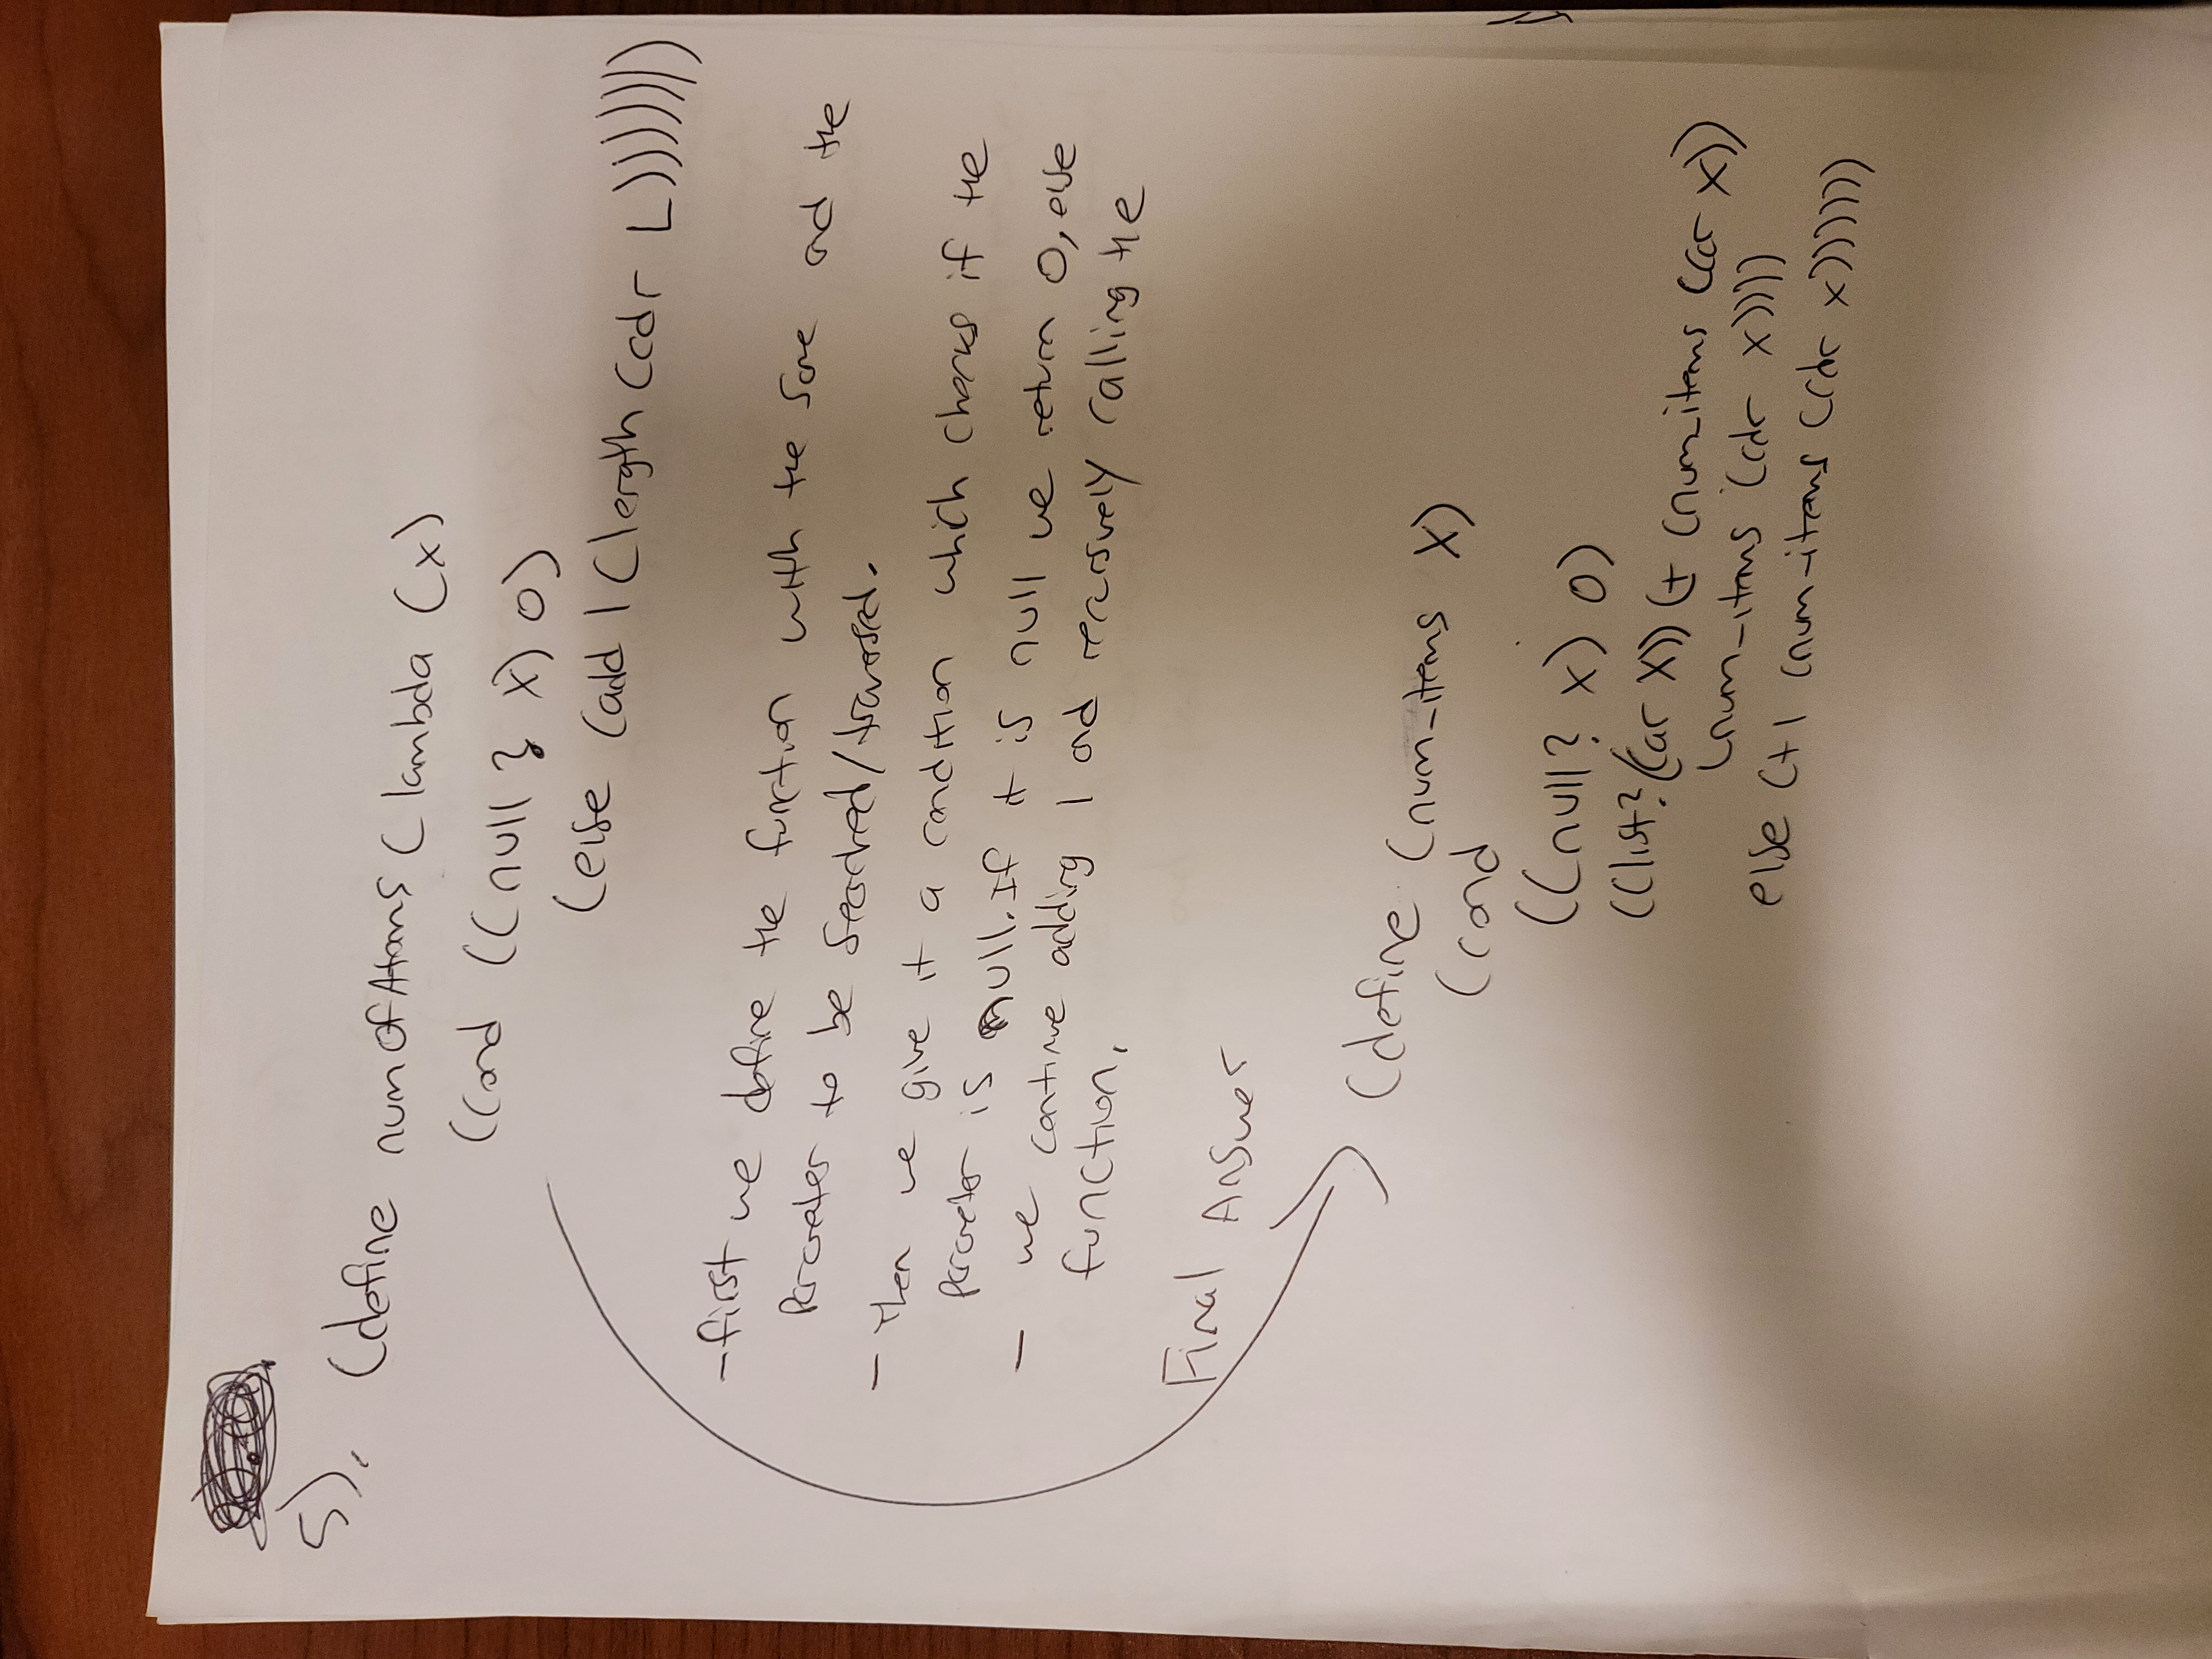 5).
(define numOfAtoms (lambda (x)
((cond ((null? x) 0)
(else (add 1 (length (cdr L)))))))
- first we define the function with the same and the
Parameter to be searched/traversed.
- then we give it a condition which checks if the
parameter is null. If it is null we return 0, else
- we continue adding 1 and recursively calling the
function.
Final Answer
(define (num_items x)
(cond
((null? x) 0)
((list? (car x)) (+ (num_items (car x))
(num_items (cdr x))))
else (+1 (num-items (cdr x))))))